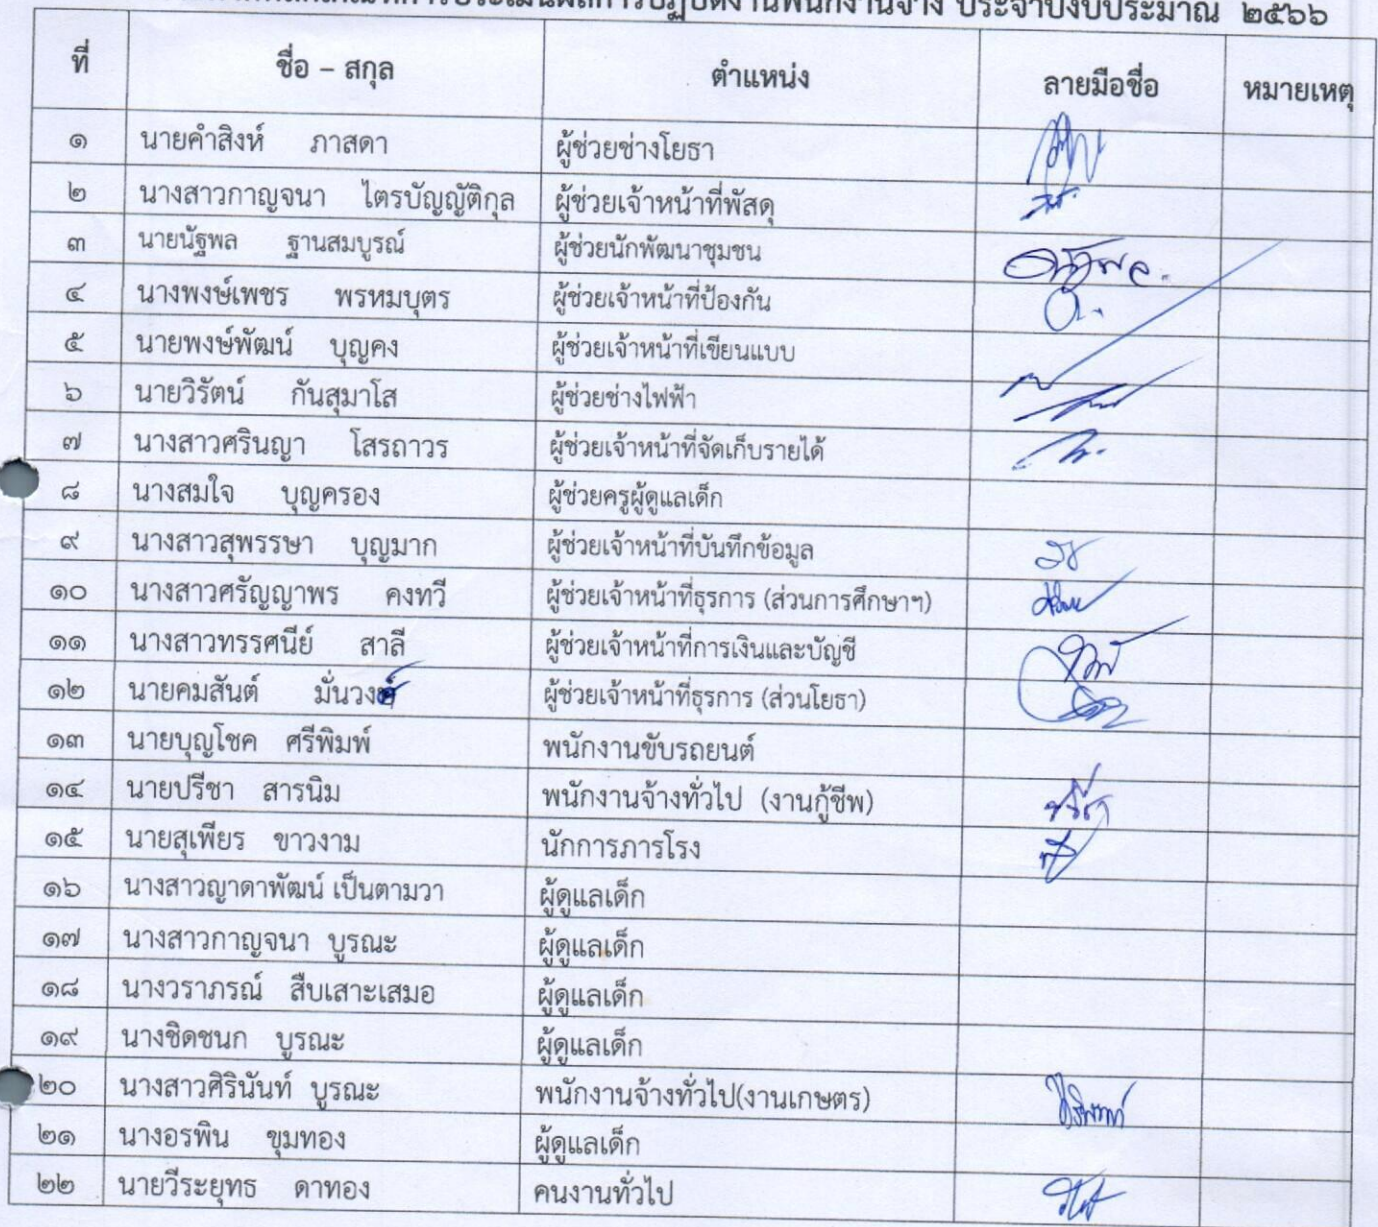 การประเมินผลการปฏิบัติงานพนักงานจ้าง ประจำปีงบประมาณ ๒๕๖๖
ที่ ชื่อ – สกุล ตำแหน่ง ลายมือชื่อ หมายเหตุ
๑ นายคำสิงห์ ภาสดา ผู้ช่วยช่างโยธา
๒ นางสาวกาญจนา ไตรบัญญัติกุล ผู้ช่วยเจ้าหน้าที่พัสดุ
๓ นายนัฐพล ฐานสมบูรณ์ ผู้ช่วยนักพัฒนาชุมชน
๔ นางพงษ์เพชร พรหมบุตร ผู้ช่วยเจ้าหน้าที่ป้องกัน
๕ นายพงษ์พัฒน์ บุญคง ผู้ช่วยเจ้าหน้าที่เขียนแบบ
๖ นายวิรัตน์ กันสุมาโส ผู้ช่วยช่างไฟฟ้า
๗ นางสาวศรินญา โสรถาวร ผู้ช่วยเจ้าหน้าที่จัดเก็บรายได้
๘ นางสมใจ บุญครอง ผู้ช่วยครูผู้ดูแลเด็ก
๙ นางสาวสุพรรษา บุญมาก ผู้ช่วยเจ้าหน้าที่บันทึกข้อมูล
๑๐ นางสาวศรัญญาพร คงทวี ผู้ช่วยเจ้าหน้าที่ธุรการ (ส่วนการศึกษาฯ)
๑๑ นางสาวทรรศนีย์ สาลี ผู้ช่วยเจ้าหน้าที่การเงินและบัญชี
๑๒ นายคมสันต์ มั่นวงศ์ ผู้ช่วยเจ้าหน้าที่ธุรการ (ส่วนโยธา)
๑๓ นายบุญโชค ศรีพิมพ์ พนักงานขับรถยนต์
๑๔ นายปรีชา สารนิม พนักงานจ้างทั่วไป (งานกู้ชีพ) ปรีชา
๑๕ นายสุเพียร ขาวงาม นักการภารโรง
๑๖ นางสาวญาดาพัฒน์ เป็นตามวา ผู้ดูแลเด็ก
๑๗ นางสาวกาญจนา บูรณะ ผู้ดูแลเด็ก
๑๘ นางวราภรณ์ สืบเสาะเสมอ ผู้ดูแลเด็ก
๑๙ นางชิดชนก บูรณะ ผู้ดูแลเด็ก
๒๐ นางสาวศิรินันท์ บูรณะ พนักงานจ้างทั่วไป(งานเกษตร)
๒๑ นางอรพิน ขุมทอง ผู้ดูแลเด็ก
๒๒ นายวีระยุทธ ดาทอง คนงานทั่วไป